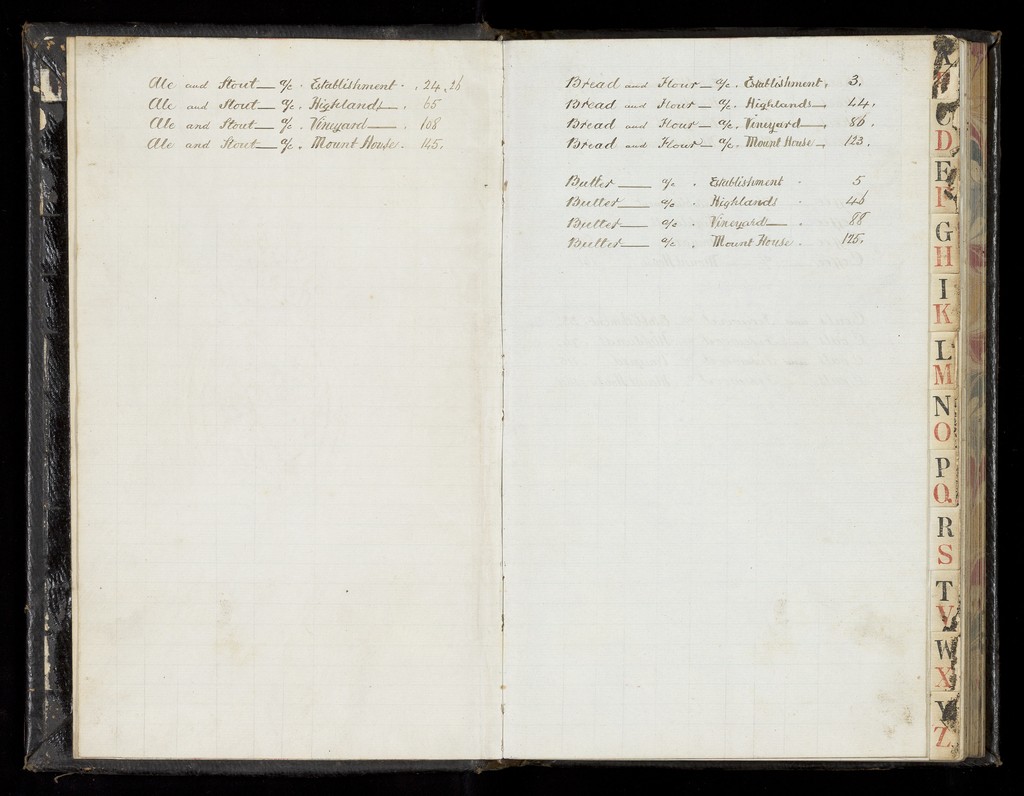 Ale and Stout — a/c . Establishment . , 24, 26
Ale and Stout — a/c . Highlands — . 65
Ale and Stout — a/c . Vineyard — . 108
Ale and Stout — a/c . Mount House . 145.
Bread and Flour — a/c . Establishment , 3.
Bread and Flour — a/c . Highlands — , 44.
Bread and Flour — a/c . Vineyard — , 86.
Bread and Flour — a/c . Mount House — , 123.
Butter — a/c . Establishment . 5
Butter — a/c . Highlands . 46
Butter — a/c . Vineyard — . 88
Butter — a/c . Mount House . 125.
C
D
E
F
G
H
I
K
L
M
N
O
P
Q.
R
S
T
V
W
X
Y
Z